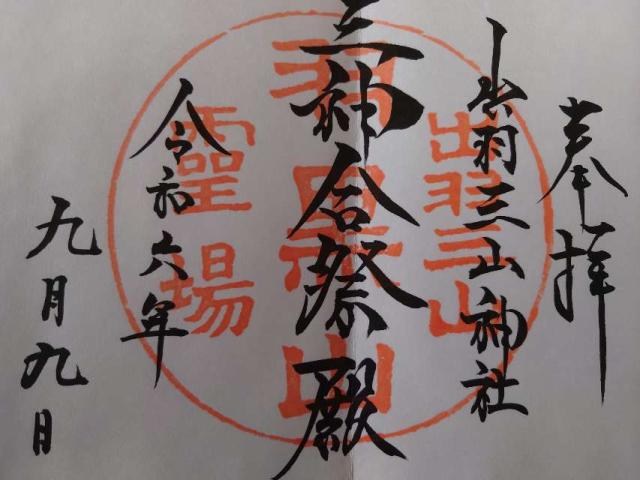 奉拝
出羽三山神社
三神合祭殿
令和六年
九月九日
出羽三山
羽黒山
霊場